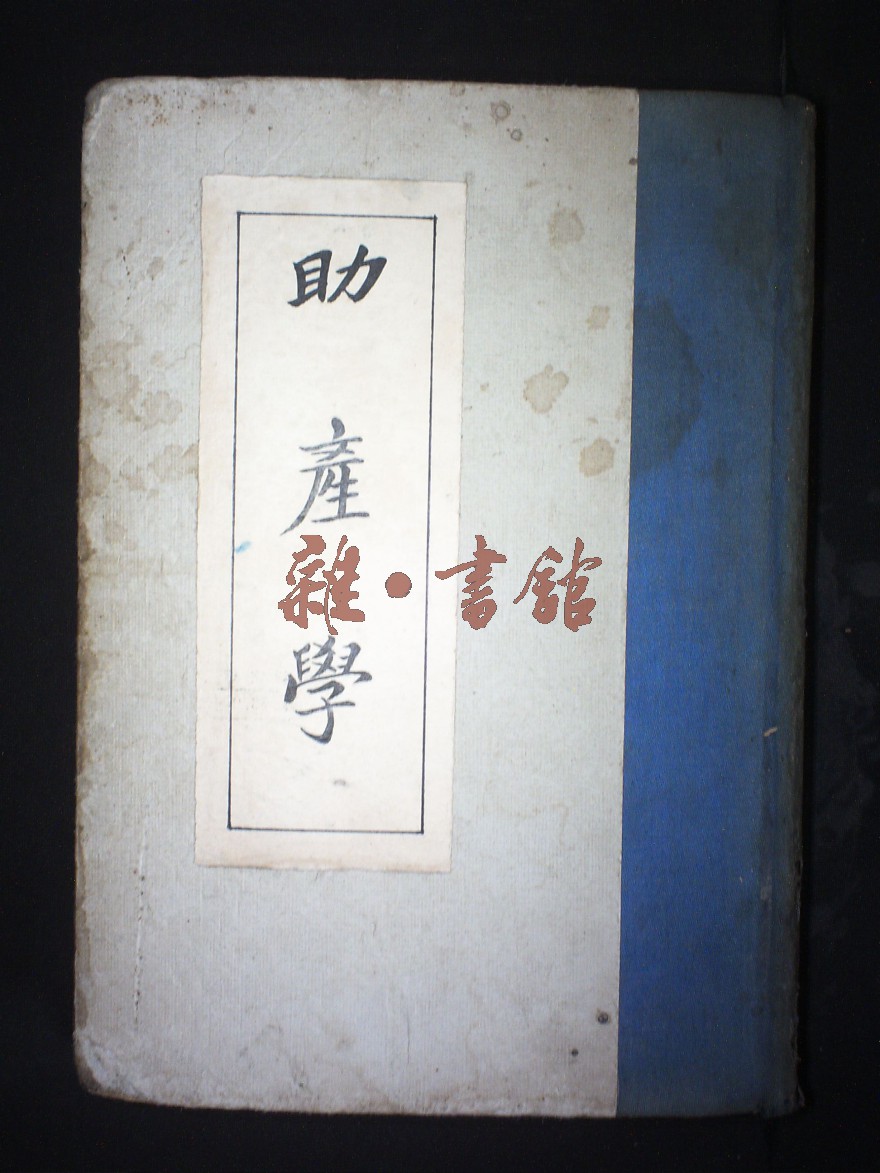 助產學
雜·書館